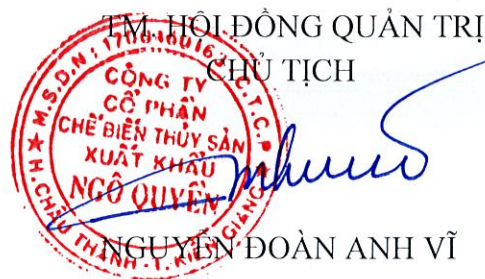 TM. HỘI ĐỒNG QUẢN TRỊ
CHỦ TỊCH
CÔNG TY
CỔ PHẦN
CHẾ BIẾN THỦY SẢN
XUẤT KHẨU
NGÔ QUYỀN
H.CHÂU THÀNH - T. KIÊN GIANG
NGUYỄN ĐOÀN ANH VĨ